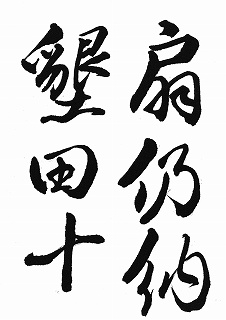 扇仍納
墾田十